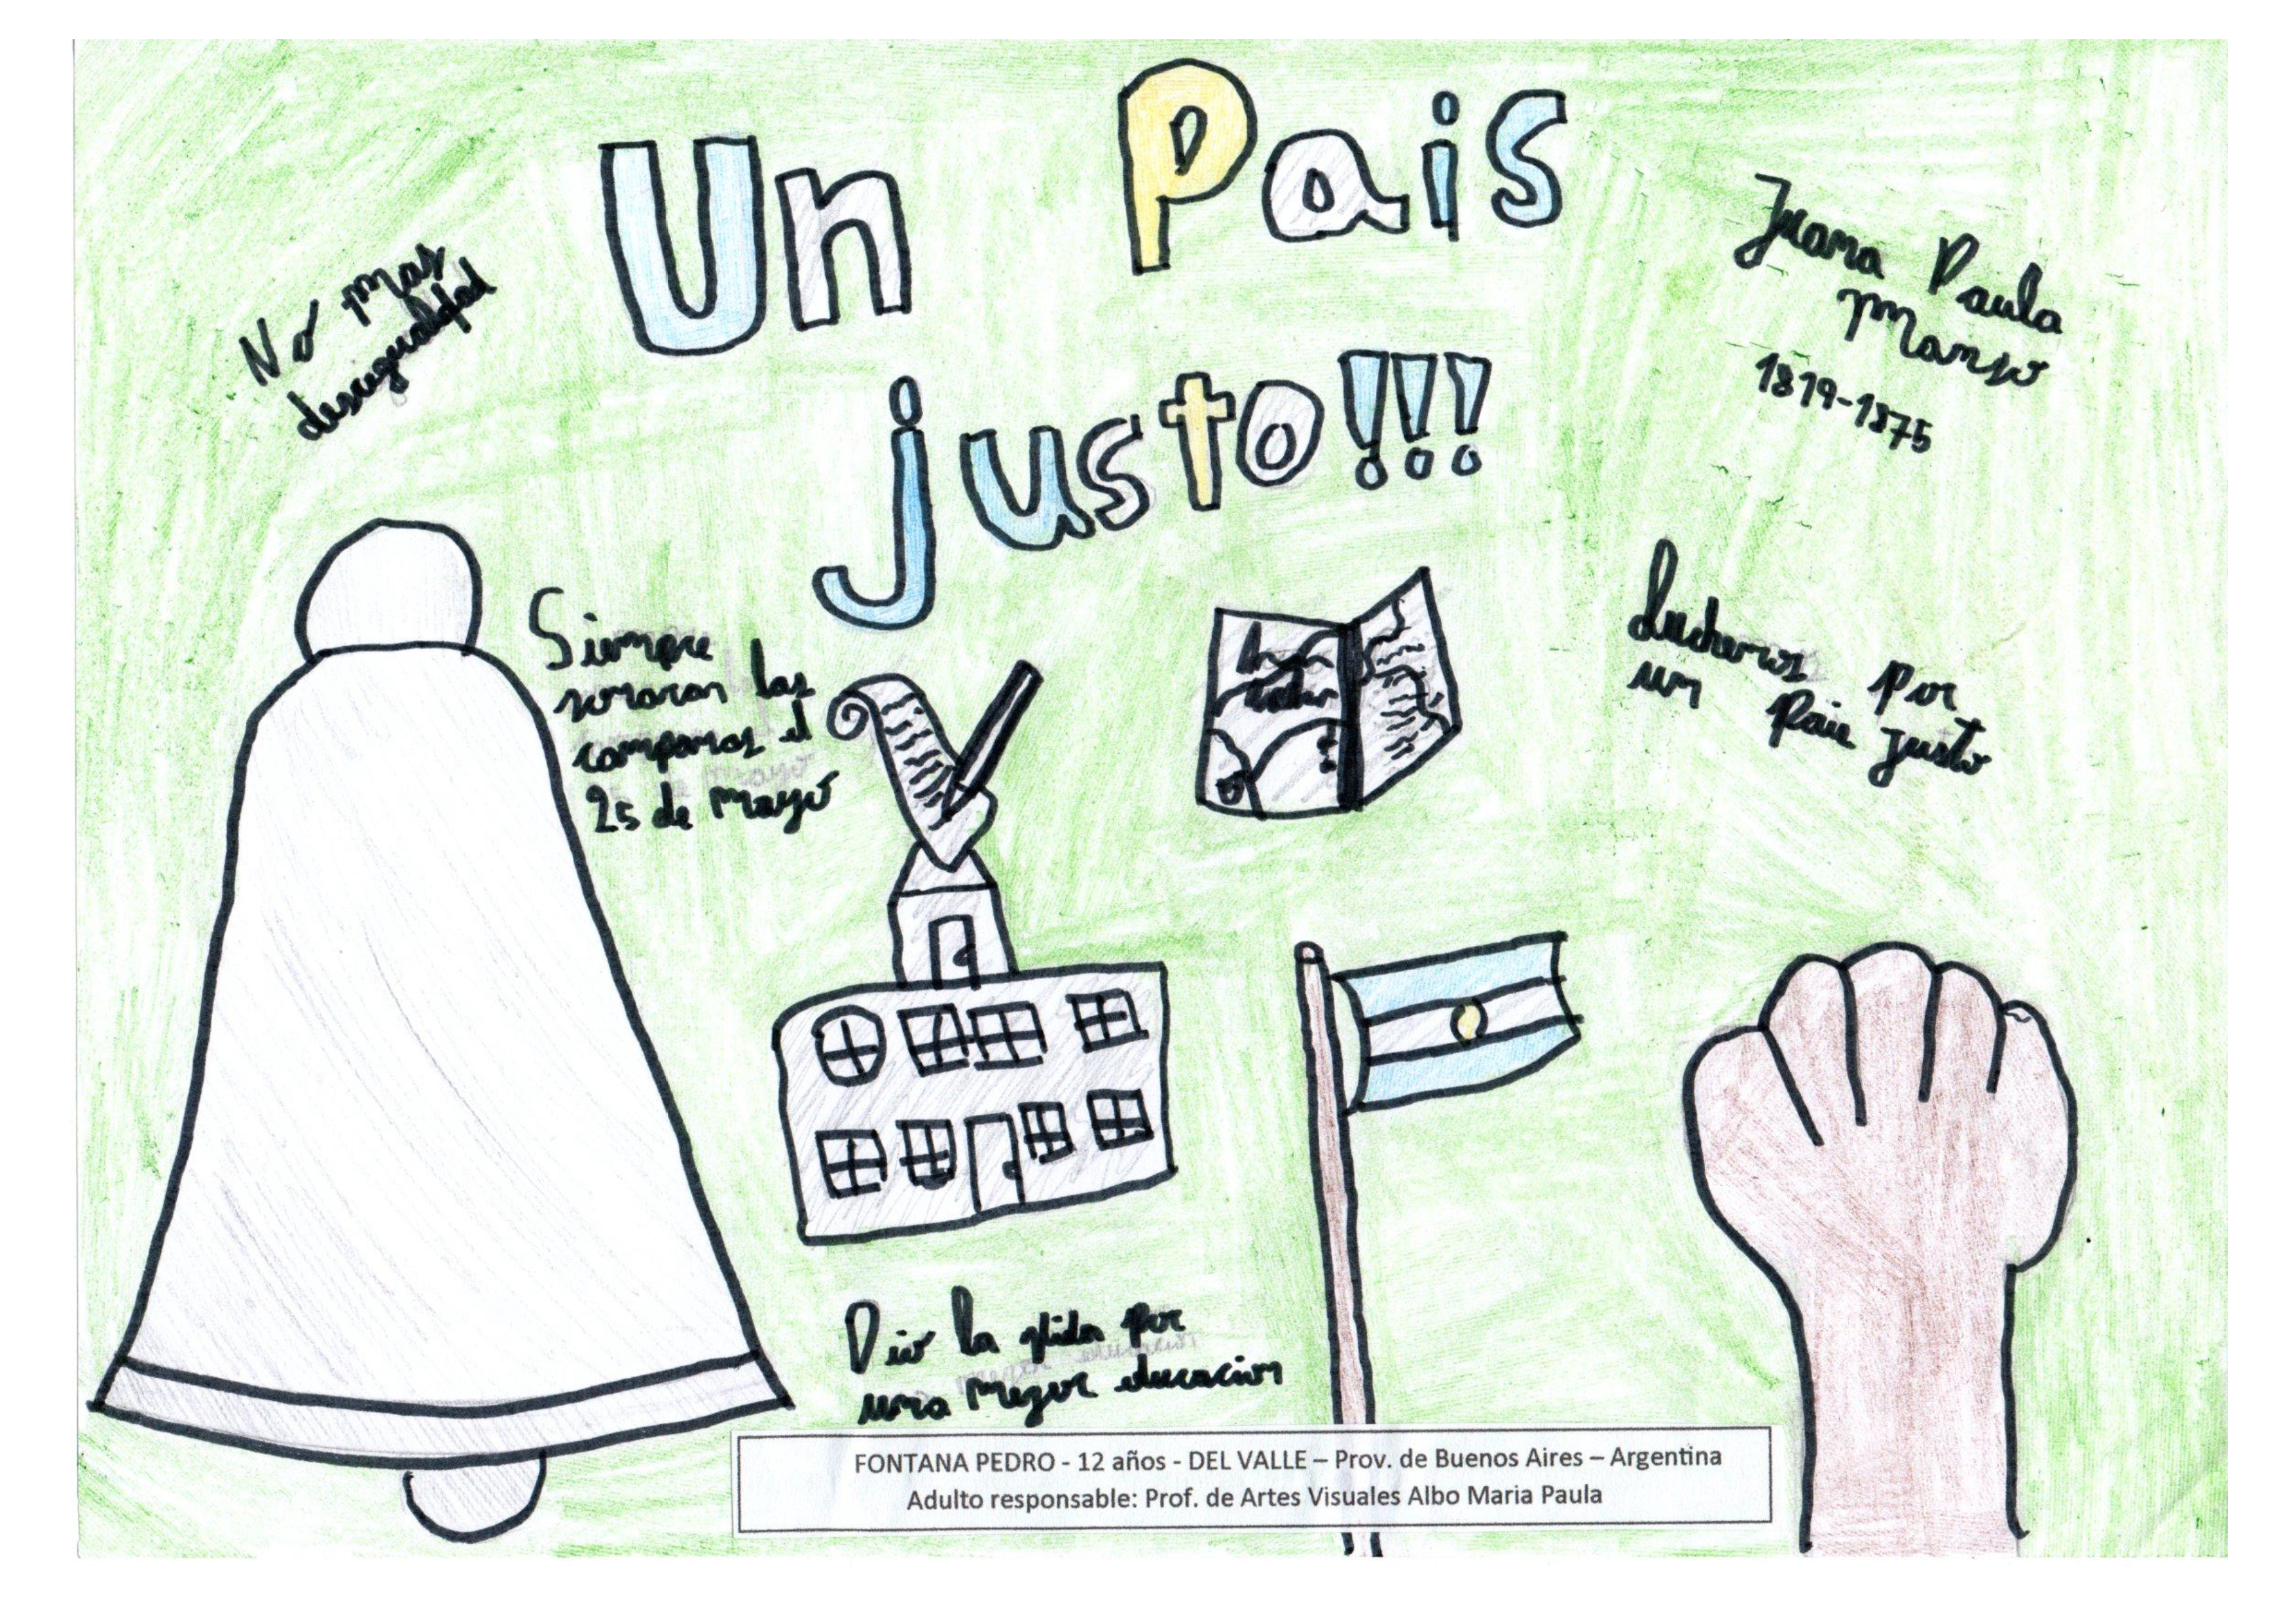 Un Pais
justo!!!
No mas
desigualdad
Juana Paula
Manso
1819-1875
Siempre
sonaran las
campanas el
25 de Mayo
Luchemos por
un Pais justo
Dio la vida por
una mejor educacion
FONTANA PEDRO - 12 años - DEL VALLE – Prov. de Buenos Aires – Argentina
Adulto responsable: Prof. de Artes Visuales Albo Maria Paula